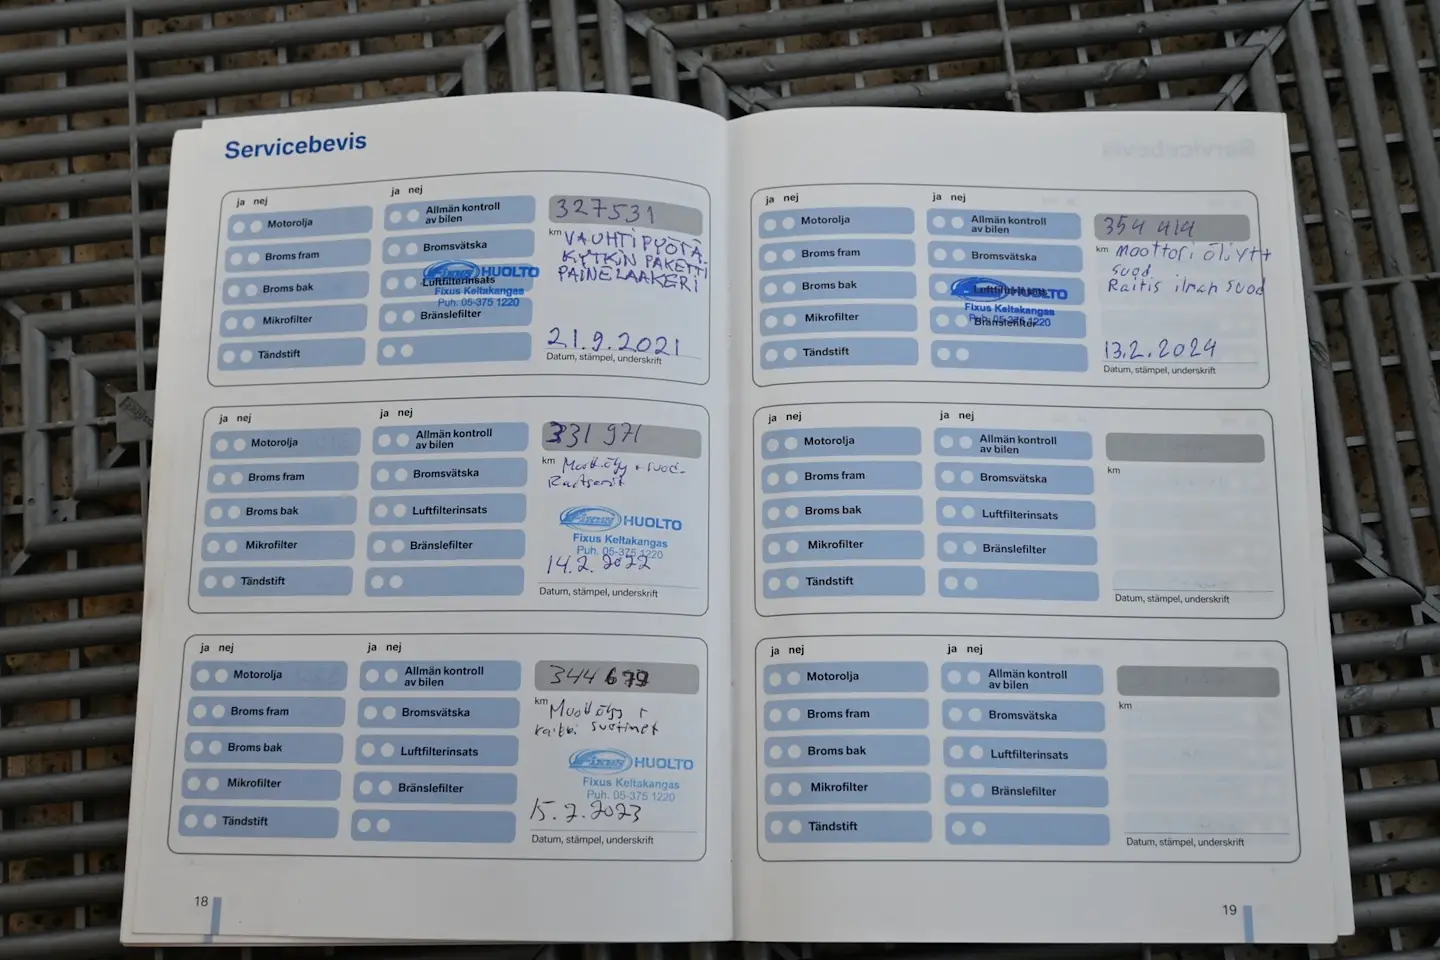 Servicebevis
ja nej
Motorolja
Broms fram
Broms bak
Mikrofilter
Tändstift
ja nej
Allmän kontroll
av bilen
Bromsvätska
Luftfilterinsats
Bränslefilter
Fixus HUOLTO
Fixus Keltakangas
Puh. 05-375 1220
327531
km VAUHTIPYÖTÄ.
KYTKIN PAKETTI
PAINELAAKERI
21.9.2021
Datum, stämpel, underskrift
ja nej
Motorolja
Broms fram
Broms bak
Mikrofilter
Tändstift
ja nej
Allmän kontroll
av bilen
Bromsvätska
Luftfilterinsats
Bränslefilter
331 971
km
Fixus HUOLTO
Fixus Keltakangas
Puh. 05-375 1220
14.2.2022
Datum, stämpel, underskrift
ja nej
Motorolja
Broms fram
Broms bak
Mikrofilter
Tändstift
ja nej
Allmän kontroll
av bilen
Bromsvätska
Luftfilterinsats
Bränslefilter
344 679
km
Fixus HUOLTO
Fixus Keltakangas
Puh. 05-375 1220
15.2.2023
Datum, stämpel, underskrift
18
ja nej
Motorolja
Broms fram
Broms bak
Mikrofilter
Tändstift
ja nej
Allmän kontroll
av bilen
Bromsvätska
Luftfilterinsats
Bränslefilter
Fixus HUOLTO
Fixus Keltakangas
Puh. 05-375 1220
354 414
km Moottori öljy++
suod
Raitis ilman suod
13.2.2024
Datum, stämpel, underskrift
ja nej
Motorolja
Broms fram
Broms bak
Mikrofilter
Tändstift
ja nej
Allmän kontroll
av bilen
Bromsvätska
Luftfilterinsats
Bränslefilter
km
Datum, stämpel, underskrift
ja nej
Motorolja
Broms fram
Broms bak
Mikrofilter
Tändstift
ja nej
Allmän kontroll
av bilen
Bromsvätska
Luftfilterinsats
Bränslefilter
km
Datum, stämpel, underskrift
19